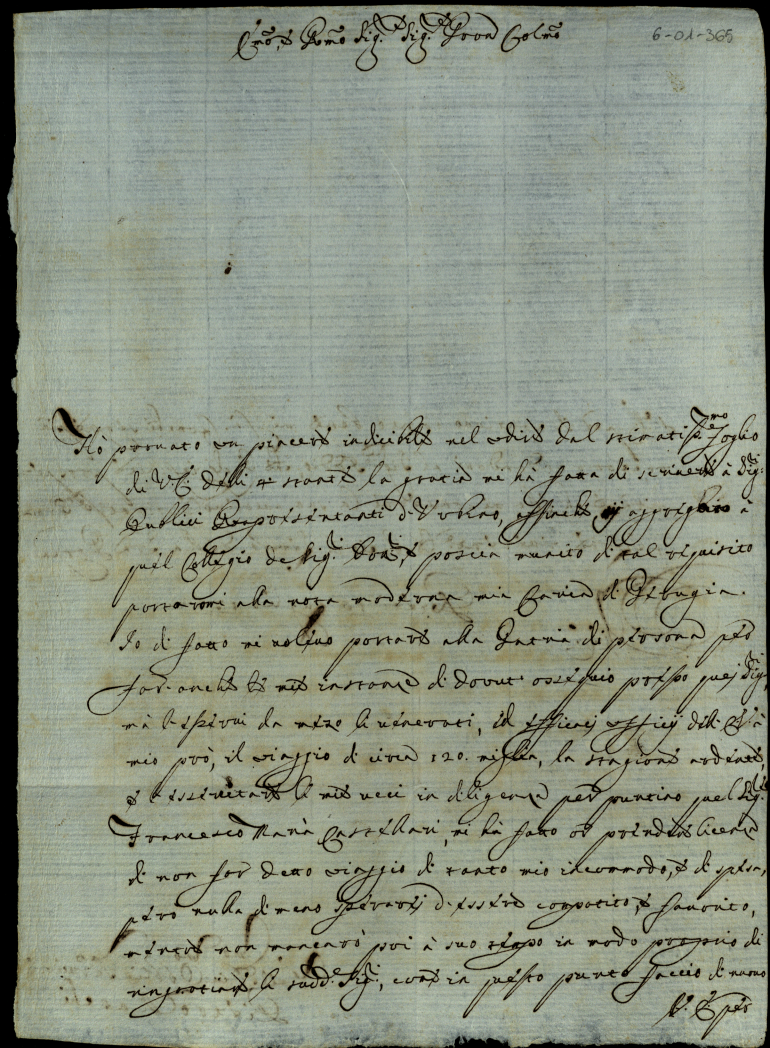 Sig.r Sig.r Pron Colmo
6-01-365
Hò provato un piacere indicibile nel udire dal stimatiss.mo foglio
di V.E. delli 4 stante la gratia mi hà fatta di scrivere à Sig:ri
Publici Rapresentanti d'Urbino, affinche aggreghino à
quel Collegio de Sig.ri e poscia munito di tal requisito
portarmi alla nota moderna mia Carica di Perugia.
Io di fatto mi volevo portare alla Patria di persona per
far anche le mie instanze di dovuto ossequio presso quej Sig.ri
mà l'esservi de mezo li venerati, ed efficacj ufficij dell' E.V. à
mio prò, il viaggio di circa 120. miglia, la stagione ardente,
e essercitare le mie veci in diligenza per puntino quel Sig.r
Francesco Maria Castellari, mi hà fatto prendere licenza
di non far detto viaggio di tanto mio incommodo, e di spesa,
pero nulla di meno sperarej d'essere compatito, e favorito,
mentre non mancarò poi à suo tempo in modo proprio di
ringratiare li sudd.i Sig.ri, come in questo punto faccio di nuovo
per